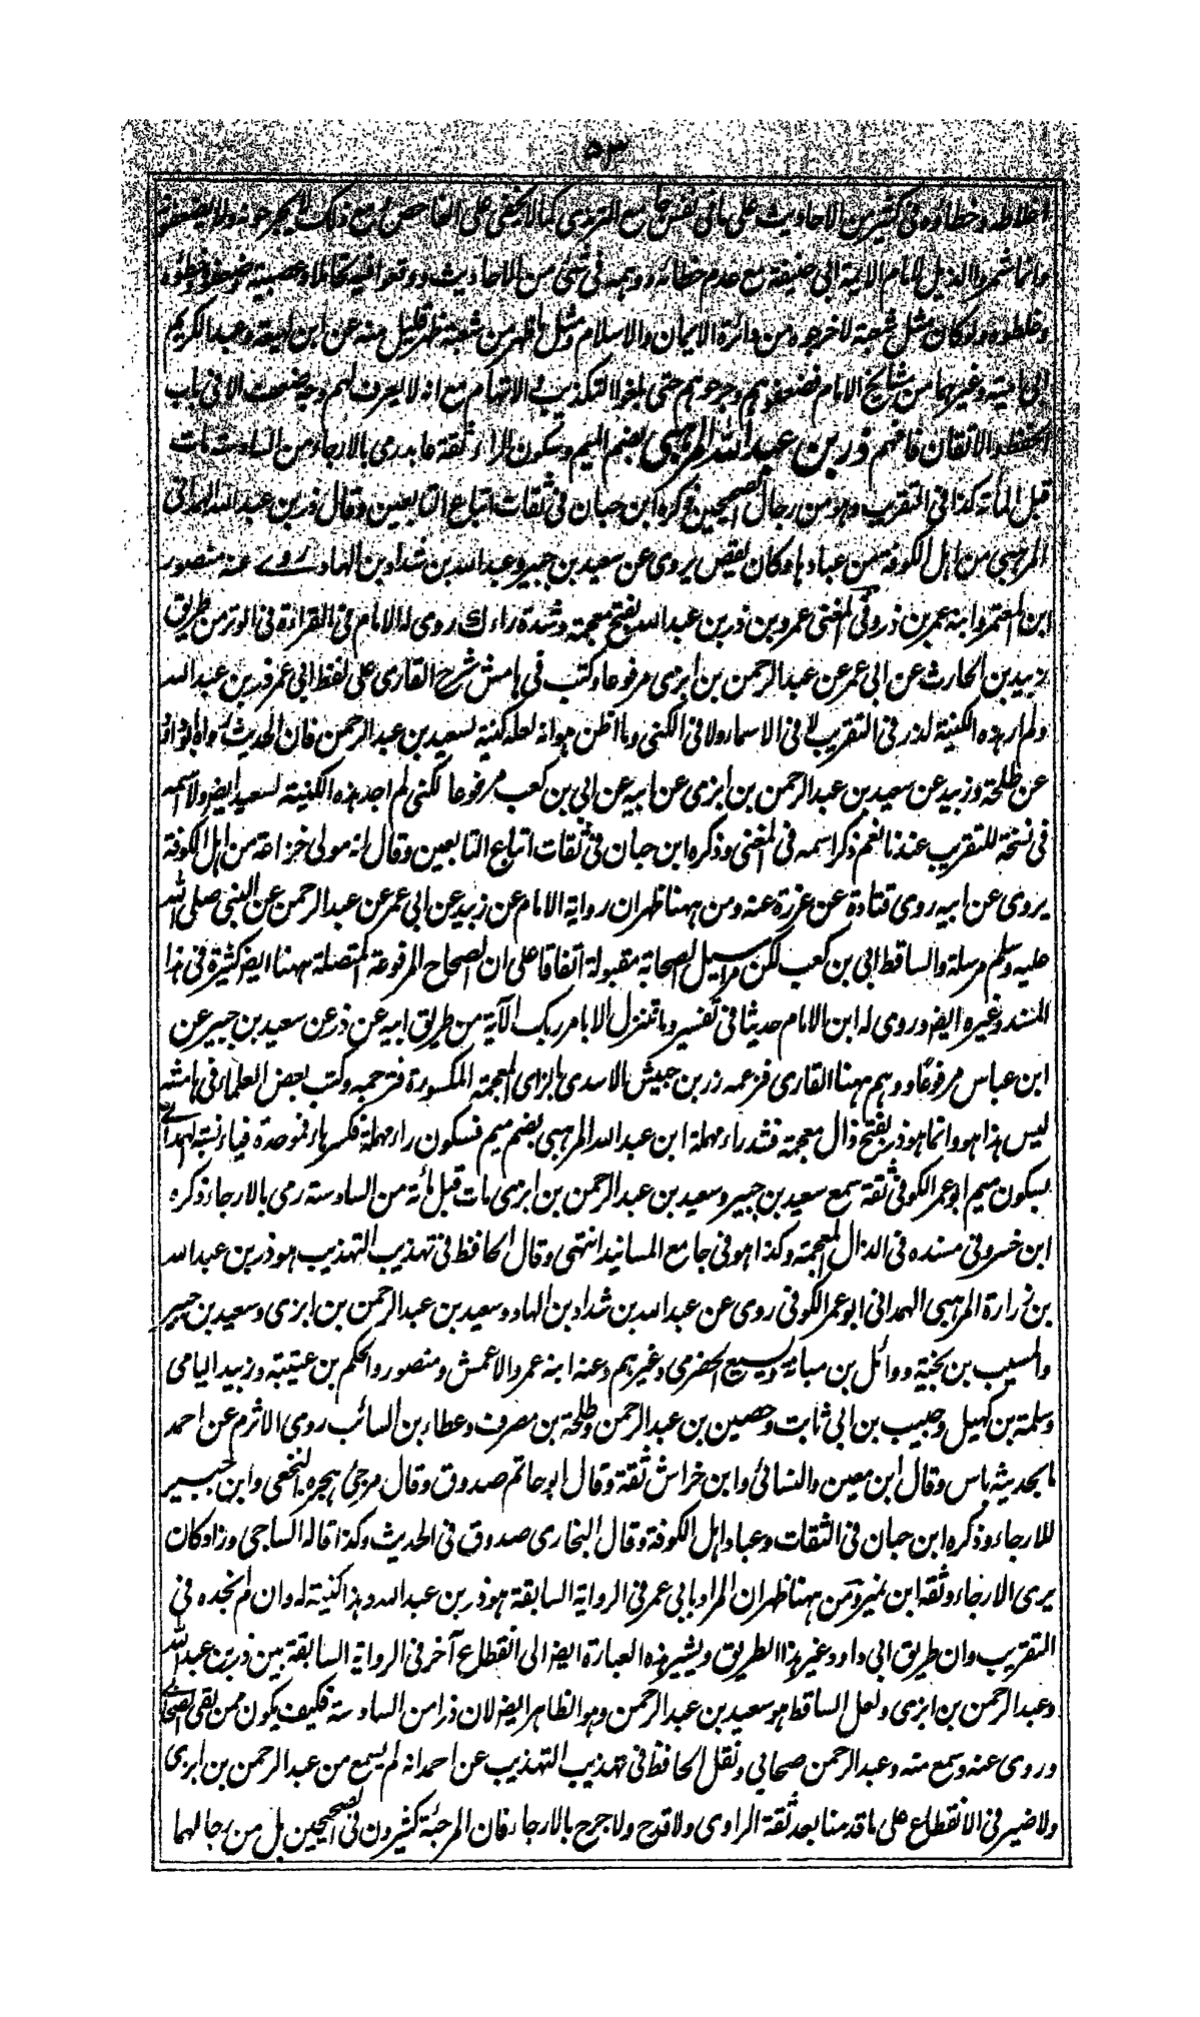 ٥٣
اغلاطه وخطاؤه فى كثير من الاحاديث على مافى نفس جامع الترمذى كما لا يخفى على الفاحص مع ذلك لم يجرحونه ولا يضعفونه
وانما شمروا الذيل لامام الايمة ابى حنيفة مع عدم خطائه ووهمه فى شئ من الاحاديث ووقعوا فيه تحاملا وعصبية وضعفوه وخطؤه
وغلطوه ولو كان مثل شعبة لاخرجوه من دائرة الايمان والاسلام ومثل ما ظهر من شعبة ظهر قليل منه عن ابن لهيعة وعبد الكريم
ابى امية وغيرهما من مشايخ الامام فضعفوهم وجرحوهم حتى بلغوا التكذيب والاتهام مع انه لا يعرف لهم وجه ضعف الا فى باب
الحفظ والاتقان فافهم ذر بن عبد الله المرهبى بضم الميم وسكون الراء ثقة عابد رمى بالارجاء من السادسة مات
قبل المأة كذا فى التقريب وهو من رجال الصحيحين ذكره ابن حبان فى ثقات اتباع التابعين وقال ذر بن عبد الله الهمدانى
المرهبى من اهل الكوفة من عبادها وكان يقص يروى عن سعيد بن جبير وعبد الله بن شداد بن الهاد روے عنه منصور
ابن المعتمر وابنه عمر بن ذر وفى المغنى عمرو بن ذر بن عبد الله بفتح معجمة وشدة راء ك روى له الامام فى القراءة فى الوتر من طريق
زبيد بن الحارث عن ابى عمر عن عبد الرحمن بن ابزى مرفوعا وكتب فى هامش شرح القارى على لفظ ابى عمر ذر بن عبد الله
ولم ار هذه الكنية لذر فى التقريب لا فى الاسماء ولا فى الكنى وما اظن هو انه لعله كنية لسعيد بن عبد الرحمن فان الحديث رواه ابو داؤد
عن طلحة وزبيد عن سعيد بن عبد الرحمن بن ابزى عن ابيه عن ابى بن كعب مرفوعا لكنى لم اجد هذه الكنية لسعيد ايضا ولا اسمه
فى نسخة للتقريب عندنا نعم ذكر اسمه فى المغنى وذكره ابن حبان فى ثقات اتباع التابعين وقال انه مولى خزاعة من اهل الكوفة
يروى عن ابيه روى قتادة عن عزرة عنه ومن ههنا ظهر ان رواية الامام عن زبيد عن ابى عمر عن عبد الرحمن عن النبى صلى الله
عليه وسلم مرسلة والساقط ابى بن كعب لكن مراسيل الصحابة مقبولة اتفاقا على ان الصحاح المرفوعة المتصلة ههنا ايضا كثيرة فى هذا
المسند وغيره ايضا وروى له ابن الامام حديثا فى تفسير وما نتنزل الا بامر ربك الآية من طريق ابيه عن ذر عن سعيد بن جبير عن
ابن عباس مرفوعا ووهم ههنا القارى فزعمه زر بن حبيش الاسدى بالزاى المعجمة المكسورة فترجمه وكتب بعض العلماء فى هامشه
ليس هذا هو وانما هو ذر بفتح ذال معجمة فشد راء مهملة ابن عبد الله المرهبى بضم ميم فسكون راء مهملة فكسر هاء فموحدة فياء نسبة الهمدانے
بسكون ميم ابو عمر الكوفى ثقة سمع سعيد بن جبير وسعيد بن عبد الرحمن بن ابزى مات قبل مائة من السادسة رمى بالارجاء ذكره
ابن خسرو فى مسنده فى الذال المعجمة وكذا هو فى جامع المسانيد انتهى وقال الحافظ فى تهذيب التهذيب هو ذر بن عبد الله
بن زرارة المرهبى الهمدانى ابو عمر الكوفى روى عن عبد الله بن شداد بن الهاد وسعيد بن عبد الرحمن بن ابزى وسعيد بن جبير
والمسيب بن نجبة ووائل بن مهانة ويسيع الحضرمى وغيرهم وعنه ابنه عمر والاعمش ومنصور والحكم بن عتيبة وزبيد اليامى
وسلمة بن كهيل وحبيب بن ابى ثابت وحصين بن عبد الرحمن وطلحة بن مصرف وعطاء بن السائب روى الاثرم عن احمد
ما بحديثه باس وقال ابن معين والنسائى وابن خراش ثقة وقال ابو حاتم صدوق وقال مرجئ هجره النخعى وابن جبير
للارجاء وذكره ابن حبان فى الثقات وعباد اهل الكوفة وقال البخارى صدوق فى الحديث وكذا قاله الساجى وزاد كان
يرى الارجاء وثقه ابن نمير ومن ههنا ظهر ان المراد بابى عمر فى الرواية السابقة هو ذر بن عبد الله وهذا كنية له وان لم نجده فى
التقريب وان طريق ابى داود غير هذا الطريق ويشير هذه العبارة ايضا الى انقطاع آخر فى الرواية السابقة بين ذر بن عبد الله
وعبد الرحمن بن ابزى ولعل الساقط هو سعيد بن عبد الرحمن وهو الظاهر ايضا لان ذرا من السادسة فكيف يكون ممن لقى الصحابے
وروى عنه وسمع منه وعبد الرحمن صحابى ونقل الحافظ فى تهذيب التهذيب عن احمد انه لم يسمع من عبد الرحمن بن ابزى
ولا ضير فى الانقطاع على ما قدمنا بعد ثقة الراوى ولا قدح ولا جرح بالارجاء فان المرجئة كثيرون فى الصحيحين بل من رجالهما